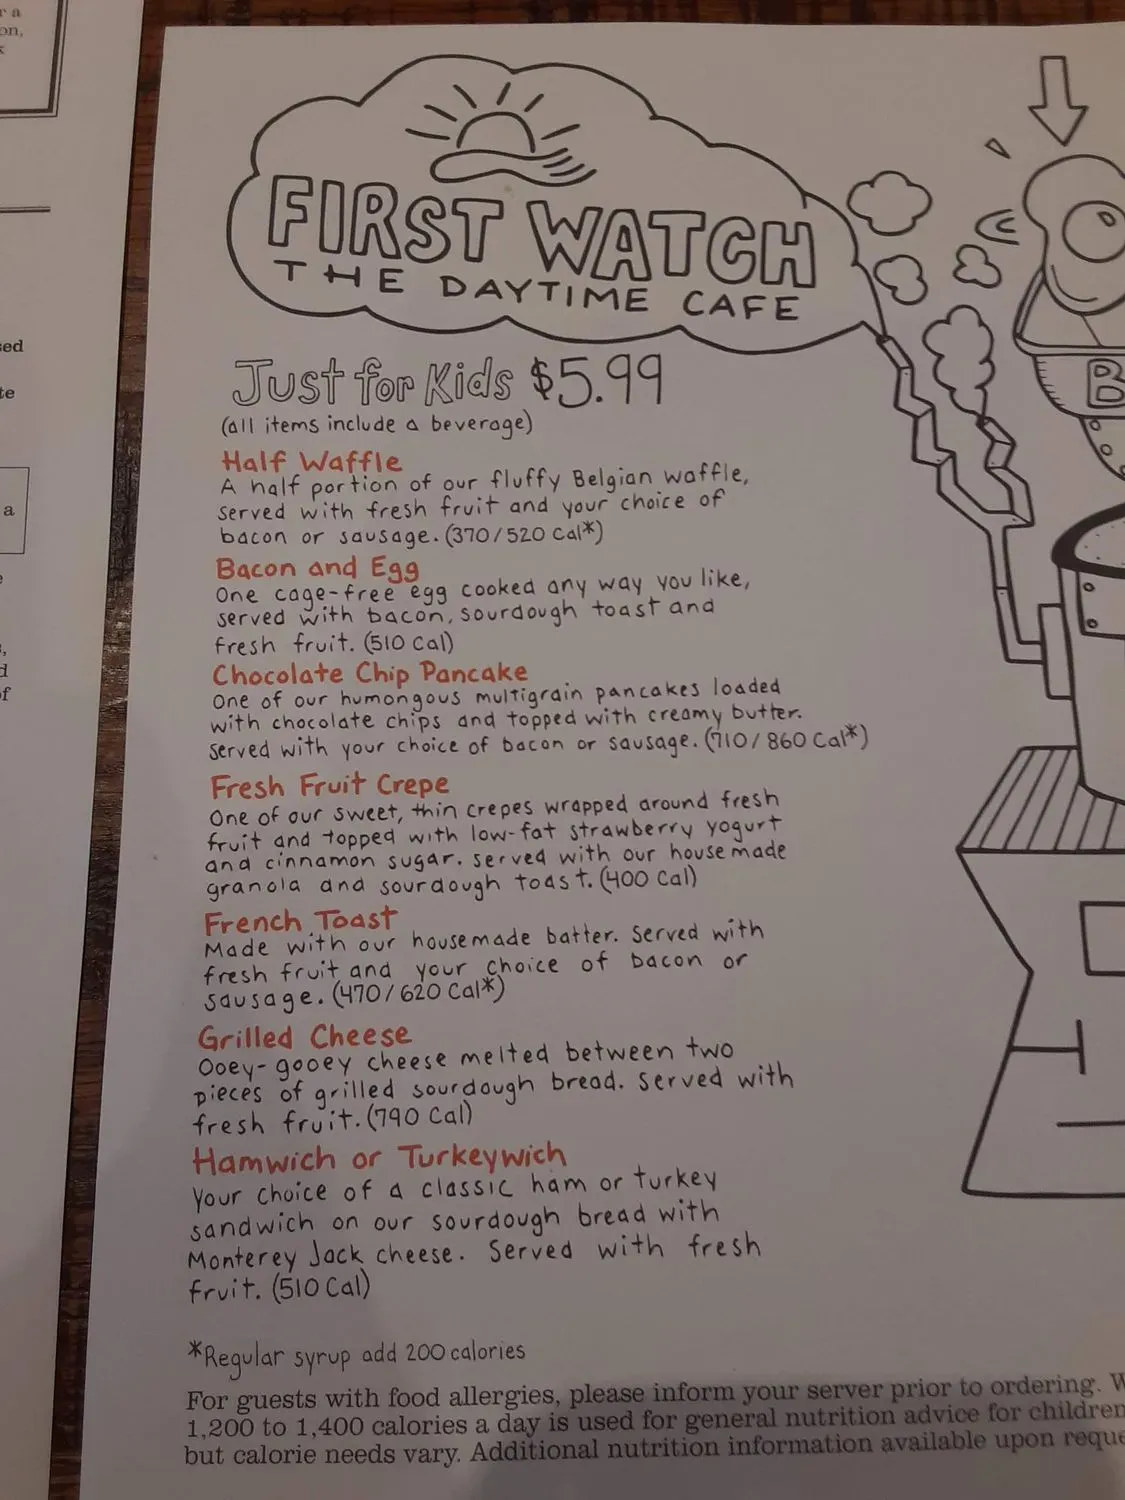 r a
on,
k
sed
te
a
e
s,
d
of
FIRST WATCH
THE DAYTIME CAFE
Just for Kids $5.99
(all items include a beverage)
Half Waffle
A half portion of our fluffy Belgian waffle,
served with fresh fruit and your choice of
bacon or sausage. (370/520 Cal*)
Bacon and Egg
One cage-free egg cooked any way you like,
served with bacon, sourdough toast and
fresh fruit. (510 Cal)
Chocolate Chip Pancake
One of our humongous multigrain pancakes loaded
with chocolate chips and topped with creamy butter.
Served with your choice of bacon or sausage. (710/860 Cal*)
Fresh Fruit Crepe
One of our sweet, thin crepes wrapped around fresh
fruit and topped with low-fat strawberry yogurt
and cinnamon sugar. Served with our housemade
granola and sourdough toast. (400 Cal)
French Toast
Made with our housemade batter. Served with
fresh fruit and your choice of bacon or
sausage. (470/620 Cal*)
Grilled Cheese
Ooey-gooey cheese melted between two
pieces of grilled sourdough bread. Served with
fresh fruit. (790 Cal)
Hamwich or Turkeywich
Your choice of a classic ham or turkey
sandwich on our sourdough bread with
Monterey Jack cheese. Served with fresh
fruit. (510 Cal)
*Regular syrup add 200 calories
For guests with food allergies, please inform your server prior to ordering. W
1,200 to 1,400 calories a day is used for general nutrition advice for children
but calorie needs vary. Additional nutrition information available upon reque
B